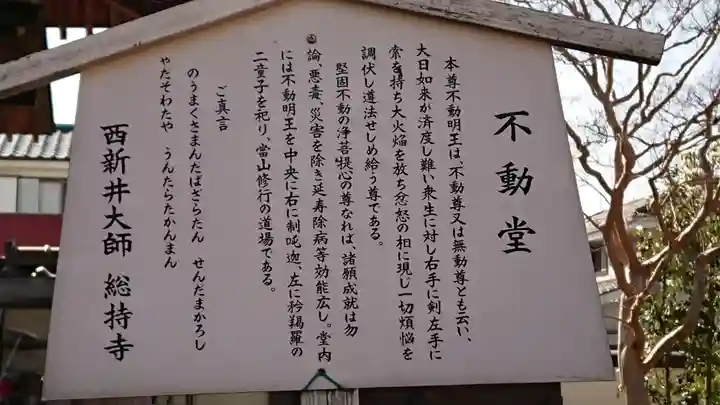 不動堂
本尊不動明王は、不動尊又は無動尊とも云い、
大日如来が済度し難い衆生に対し右手に剣左手に
索を持ち大火焔を放ち忿怒の相に現じ一切煩悩を
調伏し道法せしめ給う尊である。
堅固不動の浄菩提心の尊なれば、諸願成就は勿
論、悪毒、災害を除き延寿除病等効能広し。堂内
には不動明王を中央に右に制吒迦、左に矜羯羅の
二童子を祀り、當山修行の道場である。
ご真言
のうまくさまんだばざらだん せんだまかろし
ゃだそわたや うんたらたかんまん
西新井大師 総持寺